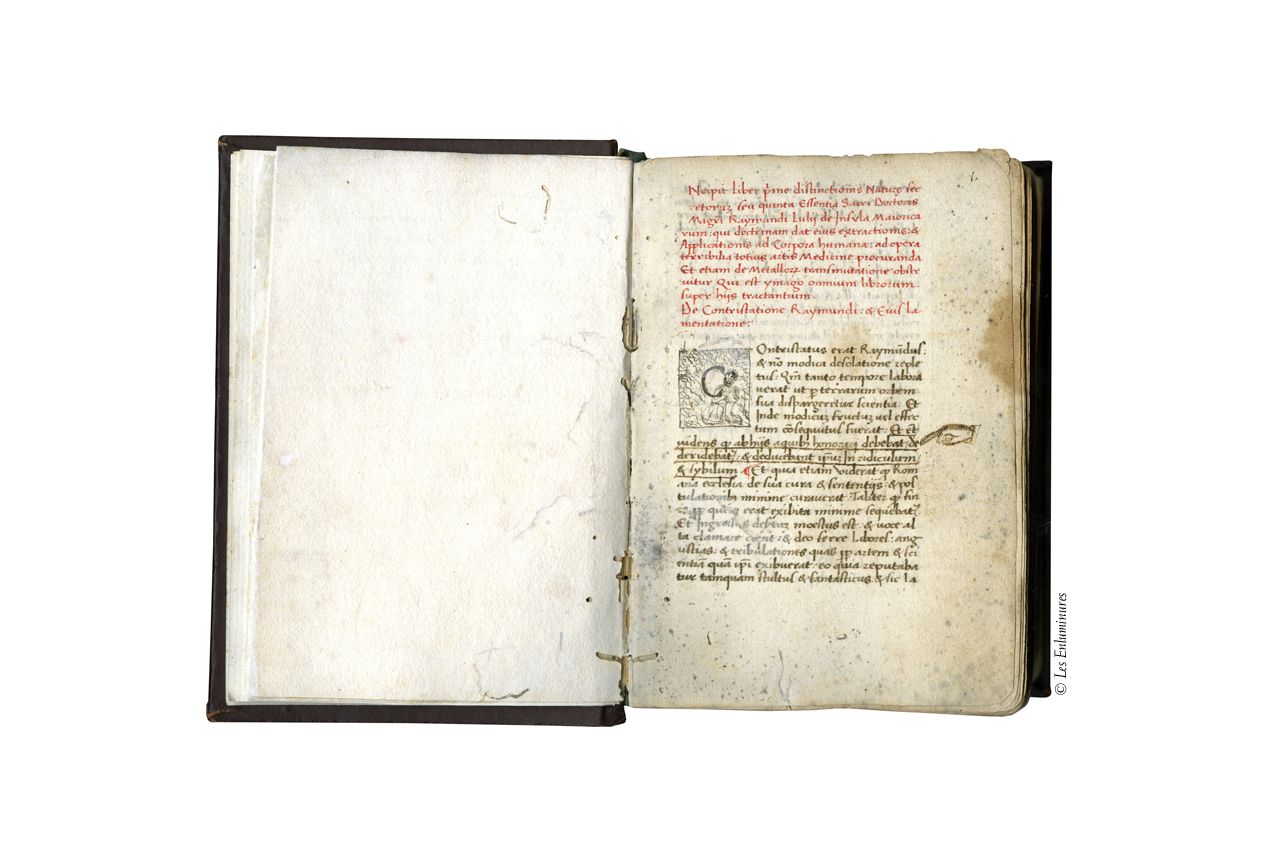 1.
Ncipit liber p̄me distinctionis Naturę sec
retoruȝ seu quinta Essentia Sacri Doctoris
Magri Raymundi Lulij de Insula Maiorica
rum: qui doctrinam dat eius extractionis: &
Applicationis ad Corpora humana: ad opera
terribilia totius artis Medicine procuranda
Et etiam de Metallorꝝ transmutatione obstr
uitur Qui est ymago omnium librorum
super hijs tractantium.
De Contristatione Raymundi: & Eius la
mentatione:
C
Ontristatus erat Raymūdus:
& nō modica desolatione reple
tus: Qm̄ tanto tempore labora
uerat ut p terrarum orbem
sua dispargeretur scientia: Et
Inde modicuȝ fructuȝ uel effec
tum cōsequutus fuerat: Et et
uidens ꝙ ab hijs a quibȝ honorari debebat: de
deridebatr̄: & deducebant ip̄uȝ In ridiculum
& sybilum ¶ Et quia etiam viderat ꝙ Rom
ana ecclesia de sua cura & sententijs & pos
tulationibȝ minime curauerat Taliter ꝙ fin
erat exibita minime sequebatr̄
Et Ingressus moestus est & uoce al
ta clamare cepit: & deo ferre Labores: ang
ustias: & tribulationes quas pp artem & sci
entiā quā ip̄i exibuerat: eo quia reputaba
tur tamquam stultus & fantasticus: & sic la
© Les Enluminures